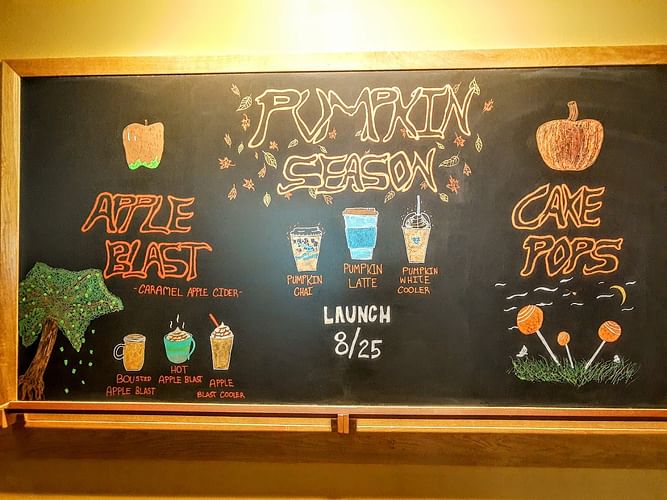 PUMPKIN
SEASON
APPLE
BLAST
-CARAMEL APPLE CIDER-
BOUSTED
APPLE BLAST
HOT
APPLE BLAST
APPLE
BLAST COOLER
PUMPKIN
CHAI
PUMPKIN
LATTE
PUMPKIN
WHITE
COOLER
LAUNCH
8/25
CAKE
POPS